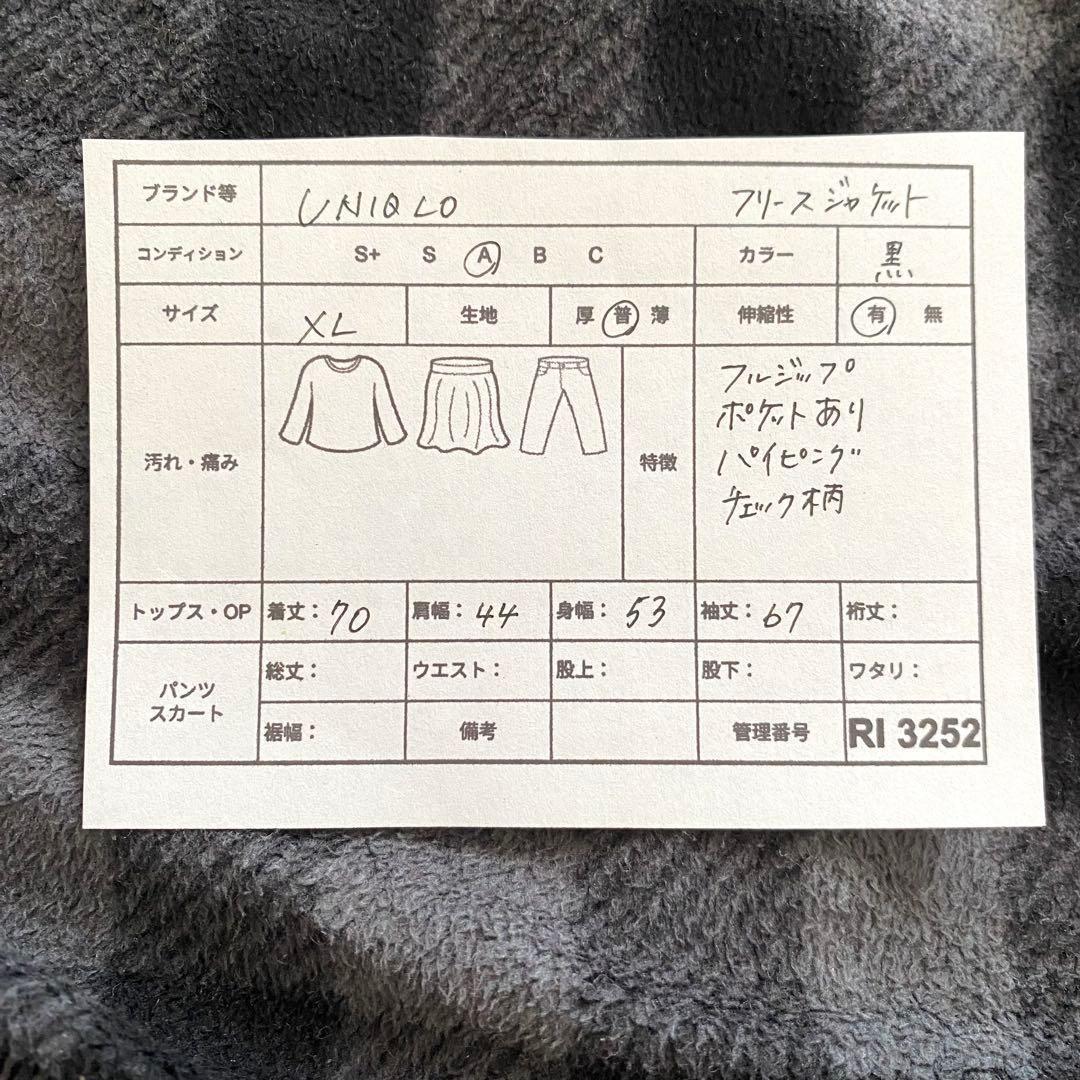 ブランド等 UNIQLO フリースジャケット
コンディション S+ S A B C カラー 黒
サイズ XL 生地 厚 普 薄 伸縮性 有 無
汚れ・痛み 特徴
フルジップ
ポケットあり
パイピング
チェック柄
トップス・OP 着丈：70 肩幅：44 身幅：53 袖丈：67 裄丈：
パンツ
スカート
総丈： ウエスト： 股上： 股下： ワタリ：
裾幅： 備考 管理番号 RI 3252